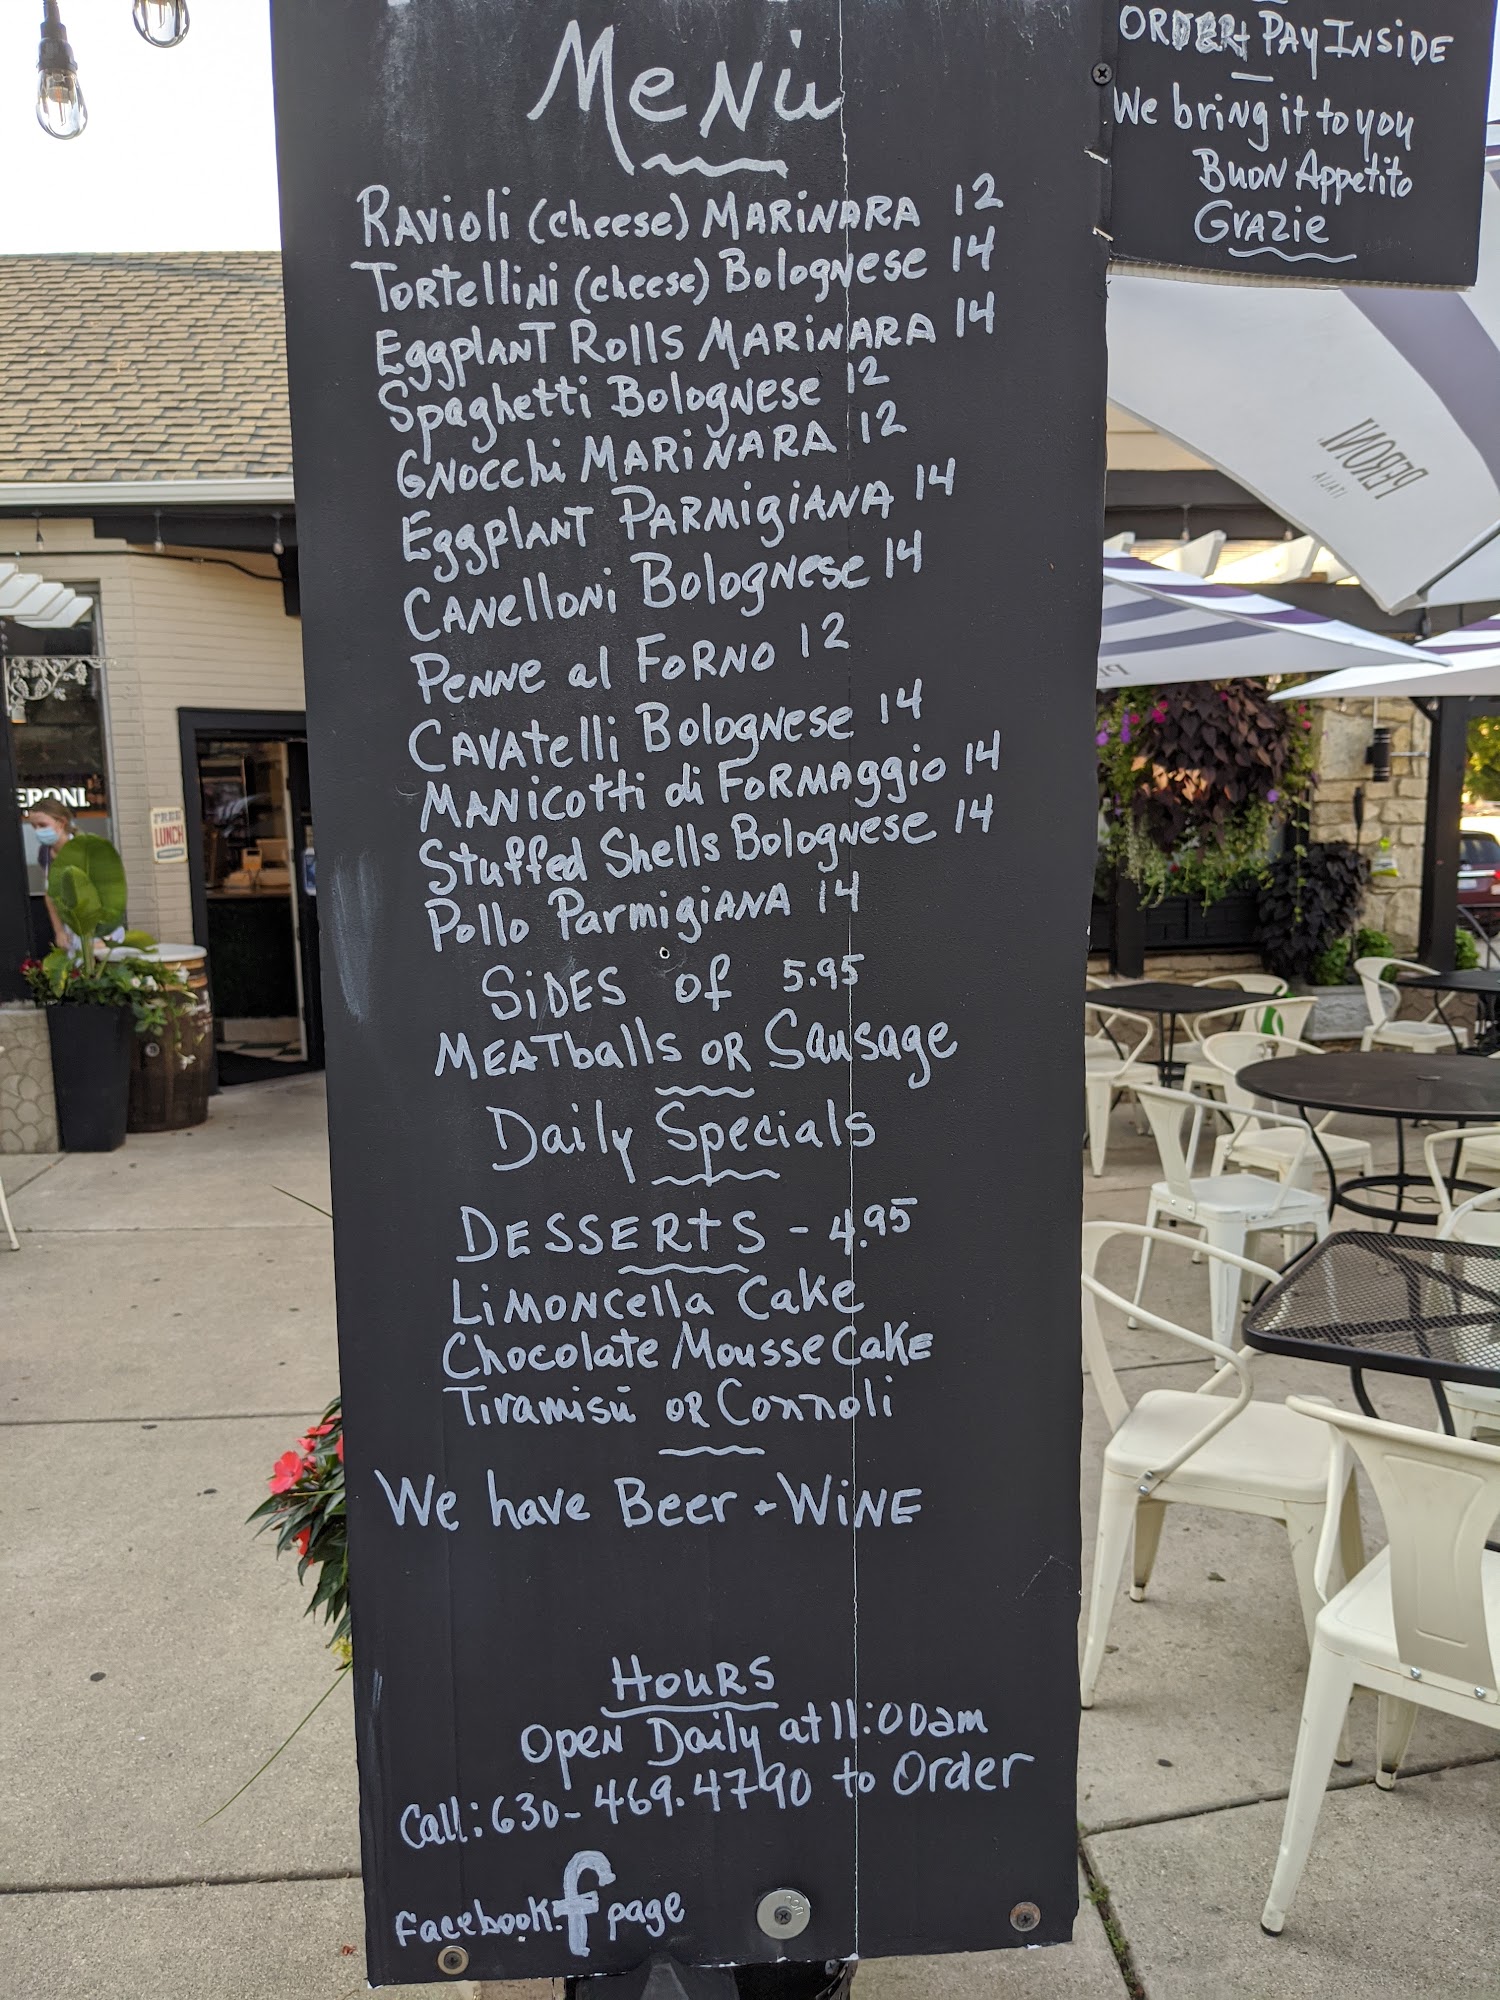 Menù
Ravioli (cheese) Marinara 12
Tortellini (cheese) Bolognese 14
Eggplant Rolls Marinara 14
Spaghetti Bolognese 12
Gnocchi Marinara 12
Eggplant Parmigiana 14
Canelloni Bolognese 14
Penne al Forno 12
Cavatelli Bolognese 14
Manicotti di Formaggio 14
Stuffed Shells Bolognese 14
Pollo Parmigiana 14
Sides of 5.95
Meatballs or Sausage
Daily Specials
Desserts - 4.95
Limoncella Cake
Chocolate Mousse Cake
Tiramisù or Connoli
We have Beer + Wine
Hours
Open Daily at 11:00am
Call: 630-469.4790 to Order
Facebook: f page
Order + Pay Inside
We bring it to you
Buon Appetito
Grazie
PERONI
ITALIA
ERONI
FREE
LUNCH